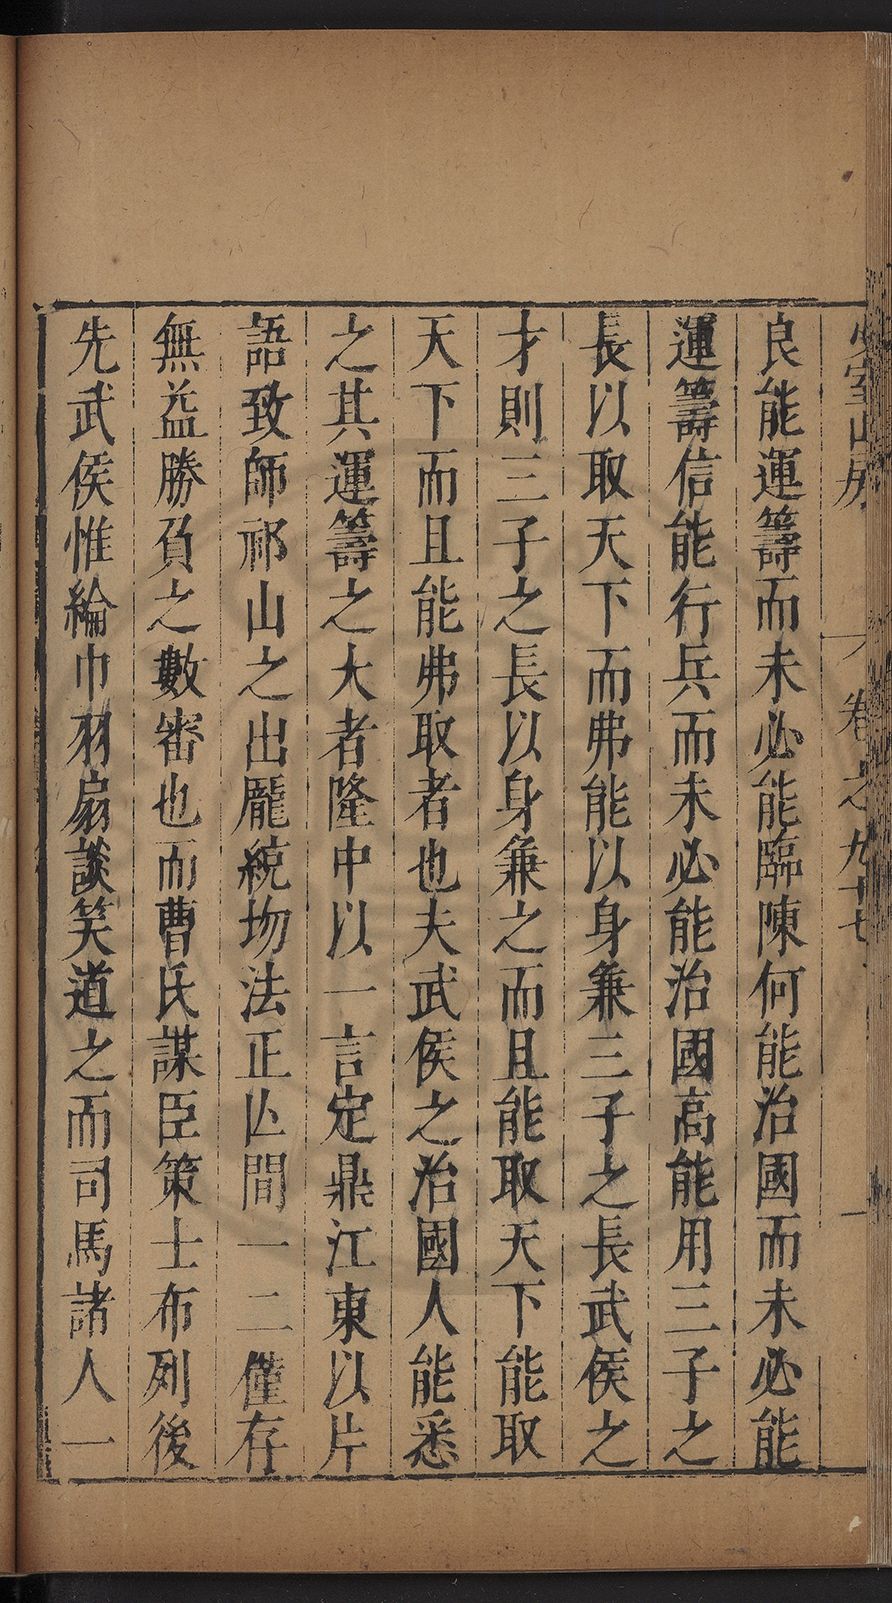 少室山房　卷之九十七　一
良能運籌而未必能臨陳何能治國而未必能
運籌信能行兵而未必能治國高能用三子之
長以取天下而弗能以身兼三子之長武侯之
才則三子之長以身兼之而且能取天下能取
天下而且能弗取者也夫武侯之治國人能悉
之其運籌之大者隆中以一言定鼎江東以片
語致師祁山之出龐統歾法正亾間一二僅存
無益勝負之數審也而曹氏謀臣策士布列後
先武侯惟綸巾羽扇談笑道之而司馬諸人一